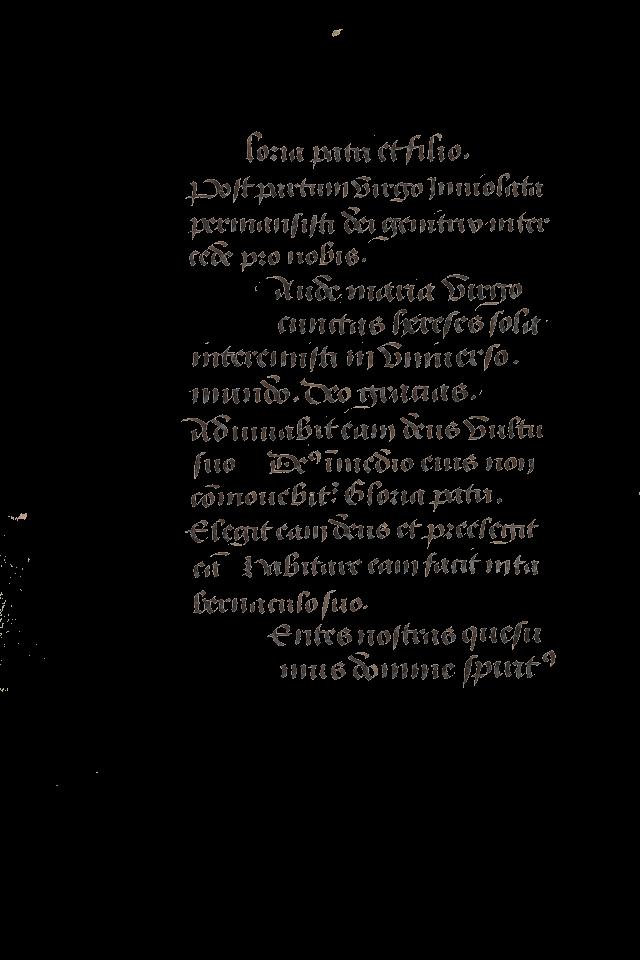 loria patri et filio.
Post partum virgo Inviolata
permansisti dei genitrix inter
cede pro nobis.
Aude maria virgo
cunctas hereses sola
interemisti in universo.
mundo. Deo gracias.
Adiuvabit eam deus vultu
suo De⁹ ī medio eius non
cōmovebit² Gloria patri.
Elegit eam deus et preelegit
eā habitare eam facit in ta
bernaculo suo.
Entes nostras quesu
mus domine spirit⁹